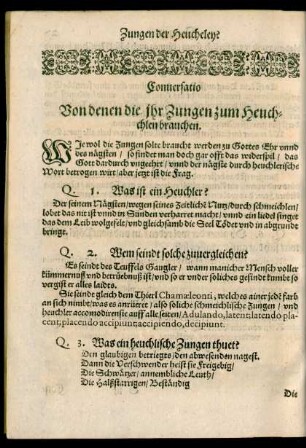 Zungen der Heucheley?
Conuersatio
Von denen die jhr Zungen zum Heuch-
chlen brauchen.
WJe wol die Zungen solte braucht werden zu Gottes Ehr vnnd
des nägsten / so findet man doch gar offt das widerspil / das
Gott dardurch ungeehrt / vnnd der nägste durch heuchlerische
Wort betrogen wirt / aber jetzt ist die Frag.
Q. 1. Was ist ein Heuchler?
Der seinem Nägsten / wegen seines Zeitliche Nutz / durch schmeichlen /
lobet das nit ist vnnd in Sünden verharret macht / vnnd ein liedel singet
das dem Leib wolgefelt / vnd gleichsamb die Seel Tödet vnd in abgrundt
bringt.
Q. 2. Wem seindt solche zuuergleichen?
Es seindt des Teuffels Gaugler / wann manicher Mensch voller
kümmernuß vnd betrüebnuß ist / vnd so er vnder soliches gesindt kumbt so
vergist er alles laidts.
Sie seindt gleich dem Thierl Chamæleonti, welches ainer jedē farb
an sich nimbt / was es anrüeret / also solche schmeichlische Zungen / vnd
heuchler accomodiren sie auff alle seiten / Adulando, latent: latendo pla-
cent, placendo accipiunt: accipiendo, decipiunt.
Q. 3. Was ein heuchlische Zungen thuet?
Den glaubigen betriegts / den abwesenden nagest.
Dann die Verschwender heist sie Freigebig /
Die Schwätzer / annembliche Leuth /
Die Halßstarrigen / Beständig
Die